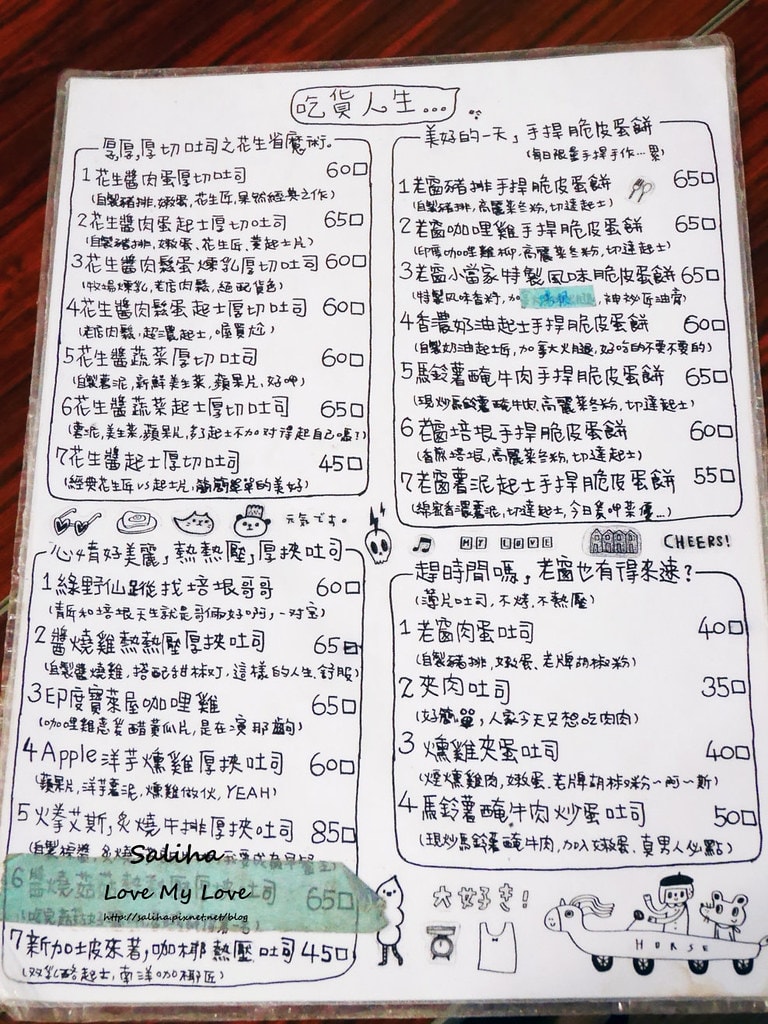 吃貨人生...
厚,厚,厚切吐司之花生省魔術。
1花生醬肉蛋厚切吐司 60
(自製豬排,嫩蛋,花生匠,果然經典之作)
2花生醬肉蛋起士厚切吐司 65
(自製豬排,嫩蛋、花生匠、業起士片)
3花生醬肉鬆蛋煉乳厚切吐司 60
(牧場煉乳,老店肉鬆,絕配貨色)
4花生醬肉鬆蛋起士厚切吐司
(老店肉鬆,超濃起士,喔買尬) 60
5花生醬蔬菜厚切吐司 60
(自製薯泥,新鮮美生菜,蘋果片、好呷)
6花生醬蔬菜起士厚切吐司 65
(薯泥,美生菜,蘋果片,起士不加对得起自己嗎?)
7花生醬起士厚切吐司 45
(經典花生匠vs起士片,簡簡單單的美好)
元気です。
心情好美麗,熱熱壓,厚挾吐司
1綠野仙蹤找培垠哥哥 60
(青醬和培垠天生就是哥倆好啊,一对宝)
2醬燒雞熱熱壓厚挾吐司 65
(自製醬燒雞,搭配甜椒丁,這樣的人生,舒服)
3印度寶萊屋咖哩雞 65
(咖哩雞意癸醋黄瓜片,是在演那齣)
4Apple洋芋燻雞厚挾吐司 60
(蘋果片,洋芋薯泥,燻雞做伙,YEAH)
5火拳艾斯,炙燒牛排厚挾吐司 85
6醬燒菇菇 吐司 65
7新加坡來著,咖椰熱壓吐司 45
(双乳酪起士,南洋咖椰匠)
美好的一天,手捍脆皮蛋餅
(每日限量手捍手作...累)
1老窩豬排手捍脆皮蛋餅 65
(自製豬排,高麗菜冬粉,切達起士)
2老窩咖哩雞手捍脆皮蛋餅 65
(印度咖哩雞柳,高麗菜冬粉,切達起士)
3老窩小當家特製風味脆皮蛋餅 65
(特製風味香料,加 ,神祕匠油膏)
4香濃奶油起士手捍脆皮蛋餅 60
(自製奶油起士匠,加拿大火腿,好吃的不要不要的)
5馬鈴薯醃牛肉手捍脆皮蛋餅 65
(現炒馬鈴薯醃牛肉,高麗菜冬粉,切達起士)
6老窩培垠手捍脆皮蛋餅 60
(香煎培垠,高麗菜冬粉,切達起士)
7老窩薯泥起士手捍脆皮蛋餅 55
(綿密香濃薯泥,切達起士,今日愛呷菜優...)
MY LOVE
CHEERS!
趕時間嗎,老窩也有得來速?
(薄片吐司,不烤,不熱壓)
1老窩肉蛋吐司 40
(自製豬排,嫩蛋、老牌胡椒粉)
2夾肉吐司 35
(好簡單,人家今天只想吃肉肉)
3燻雞夾蛋吐司 40
(煙燻雞肉,嫩蛋、老牌胡椒粉~阿~斯)
4馬鈴薯醃牛肉炒蛋吐司 50
(現炒馬鈴薯醃牛肉,加入嫩蛋、真男人必點)
大好き!
HORSE
Saliha
Love My Love
http://saliha.pixnet.net/blog